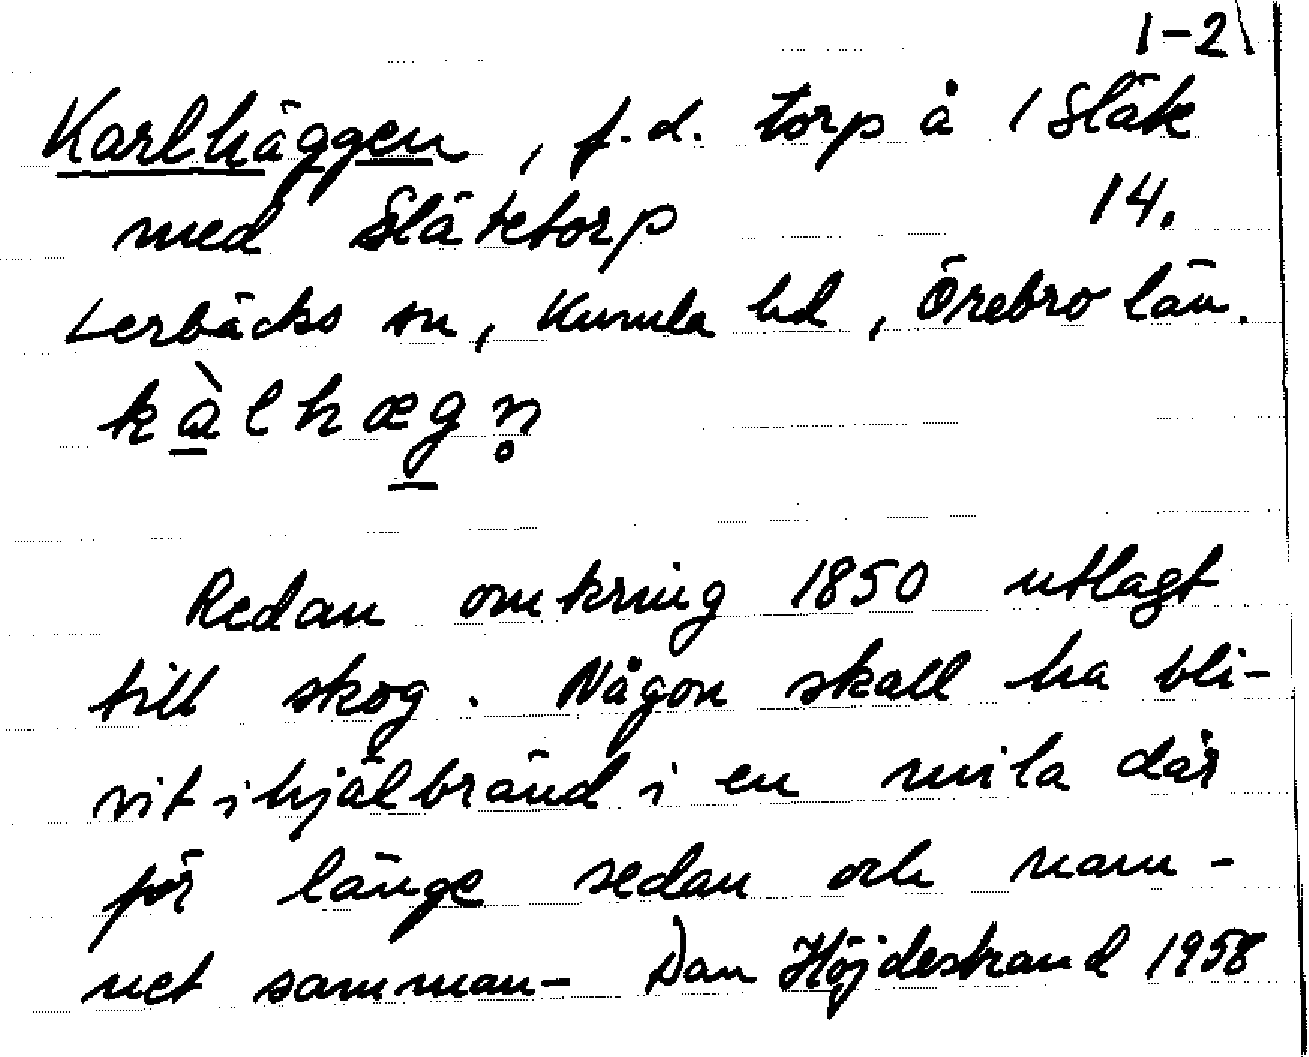 1-2\
Karlhäggen, f.d. torp å 1 Släte
med Slätetorp 14.
Lerbäcks sn, Kumla hd, Örebro län.
kàlhægn̥
Redan omkring 1850 utlagt
till skog. Någon skall ha bli-
vit ihjälbränd i en mila där
för länge sedan och nam-
net samman- Dan Höjdestrand 1958